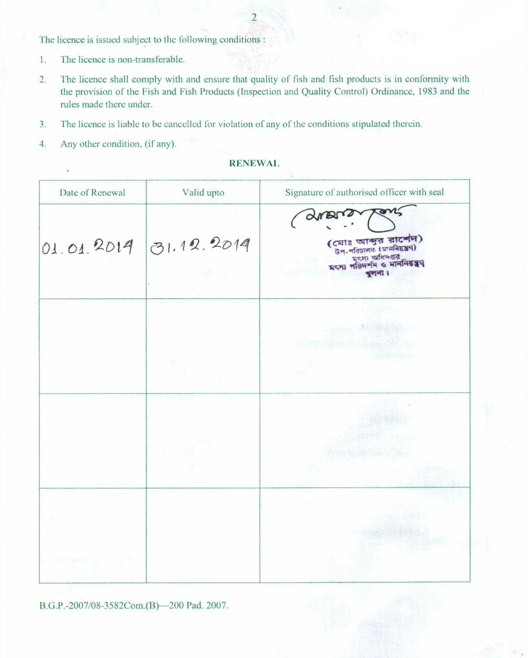 2
The licence is issued subject to the following conditions :
1. The licence is non-transferable.
2. The licence shall comply with and ensure that quality of fish and fish products is in conformity with
the provision of the Fish and Fish Products (Inspection and Quality Control) Ordinance, 1983 and the
rules made there under.
3. The licence is liable to be cancelled for violation of any of the conditions stipulated therein.
4. Any other condition, (if any).
RENEWAL
Date of Renewal Valid upto Signature of authorised officer with seal
01.01.2014 31.12.2014
(মোঃ আব্দুর রাশেদ)
উপ-পরিচালক (মাননিয়ন্ত্রণ)
মৎস্য অধিদপ্তর
মৎস্য পরিদর্শন ও মাননিয়ন্ত্রণ
খুলনা।
B.G.P.-2007/08-3582Com.(B)—200 Pad. 2007.